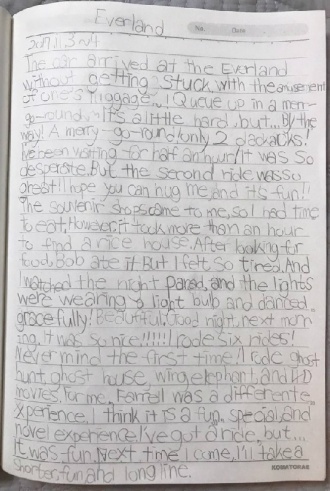 Everland
No. Date
The car arrived at the Everland
without getting stuck with the amusement
of one's luggage. I Queue up in a merr-
go-round. It's a little hard, but... By the
way! A merry-go-round only 2
I've been waiting for half an hour! It was so
desperate. But the second ride was so
great! I hope you can hug me, and it's fun!!
The souvenir shops come to me, so I had time
to eat. However, it took more than an hour
to find a rice house. After looking for
food, Bob ate it. But I felt so tired. And
I watched the night Parad, and the lights
were wearing a light bulb and danced
gracefully! Beautiful. Good night, next morn
ing, it was so nice!!!!!! I rode six rides!
Never mind the first time, I ride ghost
hunt, ghost house, wing elephant, and 4D
movies. For me, was a different e
xperience. I think it is a fun, special, and
novel experience. I've got a ride, but...
It was fun. Next time I come, I'll take a
shorter, fun and long line.